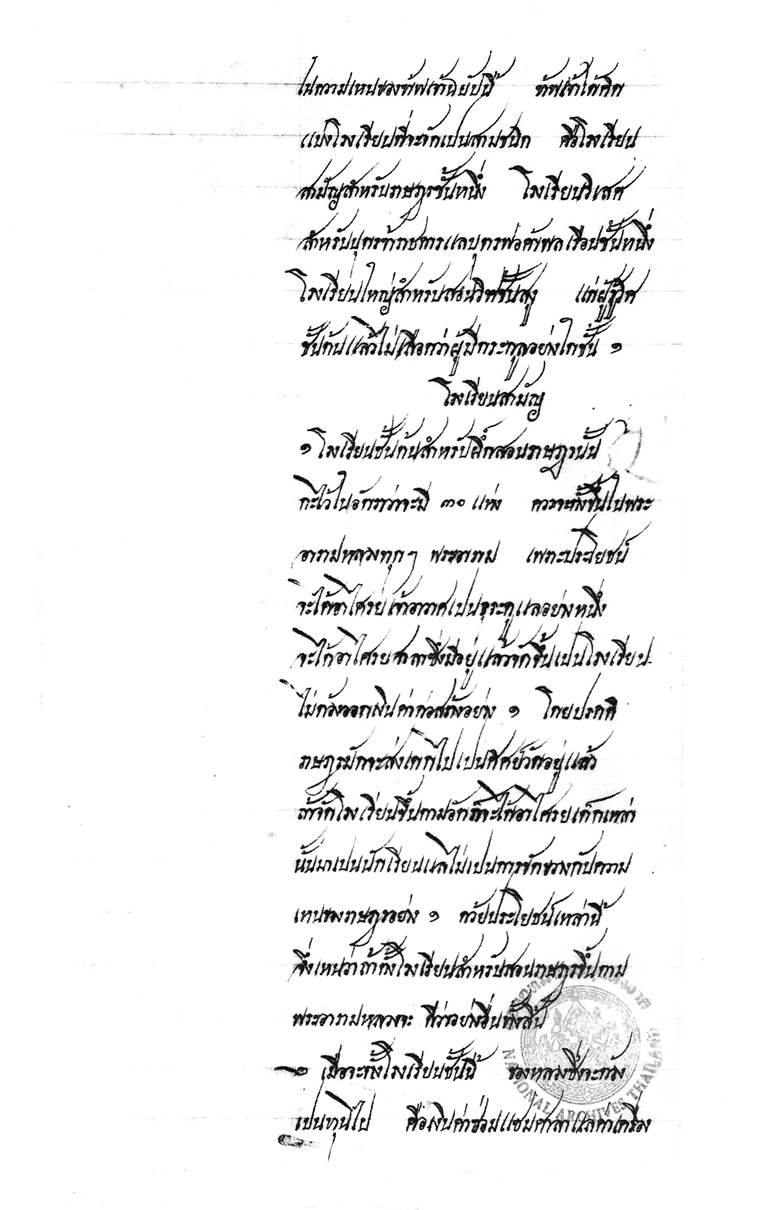 ในความเหนของข้าพเจ้าฉบับนี้ ข้าพเจ้าได้คิด
แบ่งโรงเรียนที่จะจัดเปนสามชนิด คือโรงเรียน
สามัญสำหรับราษฎรชั้นหนึ่ง โรงเรียนวิเสศ
สำหรับบุตรข้าราชการแลบุตรพ่อค้าพลเรือนชั้นหนึ่ง
โรงเรียนใหญ่สำหรับสอนวิชชาชั้นสูง แก่ผู้รู้วิชา
ชั้นต้นแล้วไม่เลือกว่าผู้มีตระกูลอย่างใดชั้น ๑
โรงเรียนสามัญ
๑ โรงเรียนชั้นต้นสำหรับฝึกสอนราษฎรนั้น
กะไว้ในอัตราว่าจะมี ๓๐ แห่ง ควรจะตั้งขึ้นในพระ
อารามหลวงทุกๆ พระอาราม เพราะประโยชน์
จะได้อาไศรยเจ้าอาวาศเปนธุระดูแลอย่างหนึ่ง
จะได้อาไศรยศาลาซึ่งมีอยู่แล้วจัดขึ้นเปนโรงเรียน
ไม่ต้องออกเงินค่าก่อสร้างอย่าง ๑ โดยปรกติ
ราษฎรมักจะส่งเดกไปเปนศิศย์วัดอยู่แล้ว
ถ้าจัดโรงเรียนขึ้นตามวัดก็จะได้อาไศรยเด็กเหล่า
นั้นมาเปนนักเรียนแลไม่เปนการขัดขวางกับความ
เหนของราษฎรอย่าง ๑ ด้วยประโยชน์เหล่านี้
จึ่งเหนว่าถ้าตั้งโรงเรียนสำหรับสอนราษฎรขึ้นตาม
พระอารามหลวงจะ ดีกว่าอย่างอื่นทั้งสิ้น
๒ เมื่อจะตั้งโรงเรียนชั้นนี้ ของหลวงซึ่งจะต้อง
เปนทุนไป คือเงินค่าซ่อมแซมศาลาแลค่าเครื่อง
NATIONAL ARCHIVES THAILAND